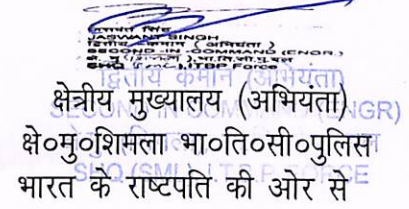 जसवंत सिंह
JASWANT SINGH
द्वितीय कमान (अभियंता)
SECOND IN COMMAND (ENGR.)
SHQ (SML), ITBP FORCE
द्वितीय कमान (अभियंता)
क्षेत्रीय मुख्यालय (अभियंता)
SECOND IN COMMAND (ENGR)
क्षे०मु०शिमला भा०ति०सी०पुलिस
SHQ (SML) I.T.B.P. FORCE
भारत के राष्टपति की ओर से